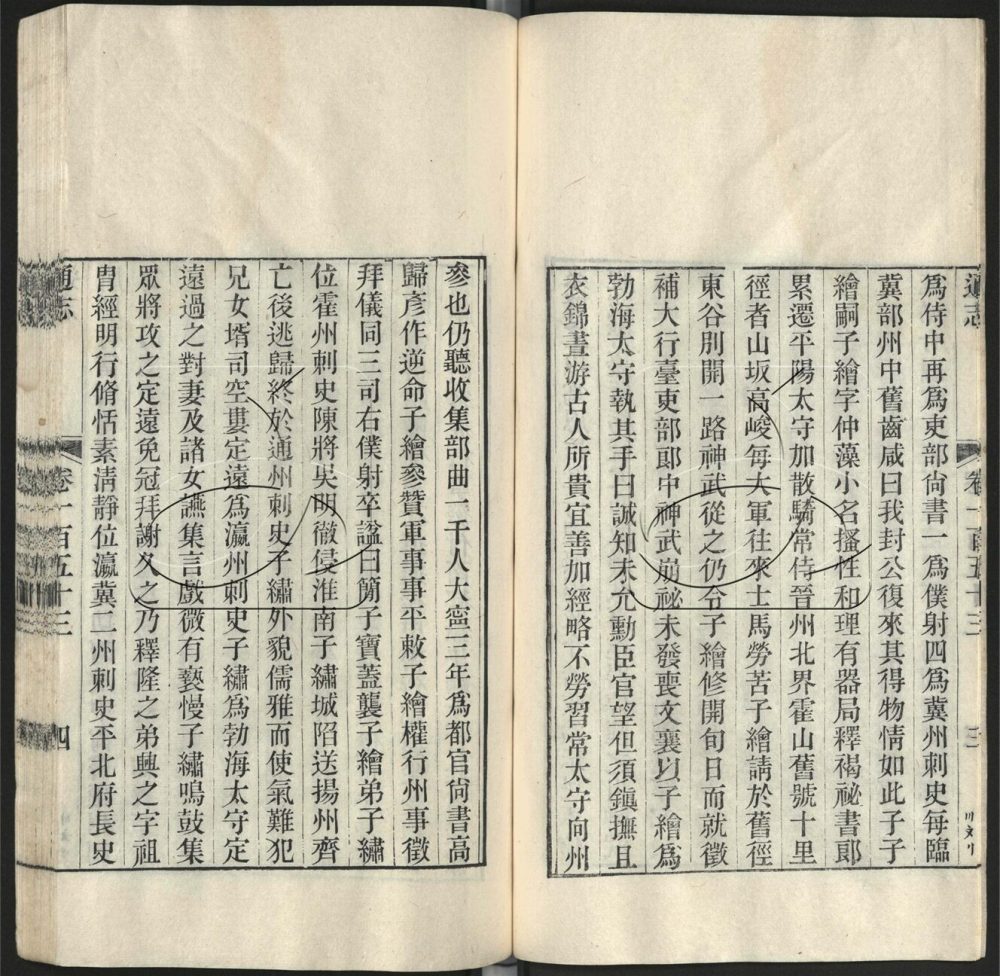 通志
卷一百五十三
三
爲侍中再爲吏部尙書一爲僕射四爲冀州刺史每臨
冀部州中舊齒咸曰我封公復來其得物情如此子子
繪嗣子繪字仲藻小名搔性和理有器局釋褐祕書郞
累遷平陽太守加散騎常侍晉州北界霍山舊號十里
徑者山坂高峻每大軍往來士馬勞苦子繪請於舊徑
東谷別開一路神武從之仍令子繪修開旬日而就徵
補大行臺吏部郞中神武崩祕未發喪文襄以子繪爲
勃海太守執其手曰誠知未允勳臣官望但須鎭撫且
衣錦晝游古人所貴宜善加經略不勞習常太守向州
參也仍聽收集部曲一千人大寧三年爲都官尙書高
歸彥作逆命子繪參贊軍事事平敕子繪權行州事徵
拜儀同三司右僕射卒諡曰簡子寶蓋襲子繪弟子繡
位霍州刺史陳將吳明徹侵淮南子繡城陷送揚州齊
亡後逃歸終於通州刺史子繡外貌儒雅而使氣難犯
兄女壻司空婁定遠爲瀛州刺史子繡爲勃海太守定
遠過之對妻及諸女讌集言戲微有褻慢子繡鳴鼓集
眾將攻之定遠免冠拜謝久之乃釋隆之弟興之字祖
冑經明行脩恬素淸靜位瀛冀二州刺史平北府長史
通志
卷一百五十三
四